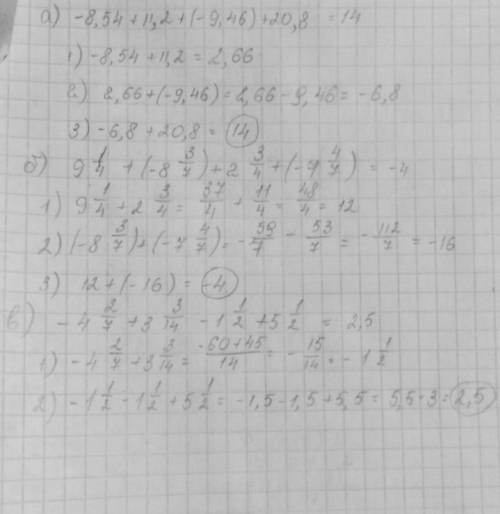 а) -8,54 + 11,2 + (-9,46) + 20,8 = 14
1) -8,54 + 11,2 = 2,66
2) 2,66 + (-9,46) = 2,66 - 9,46 = -6,8
3) -6,8 + 20,8 = 14
б) 9 1/4 + (-8 3/7) + 2 3/4 + (-7 4/7) = -4
1) 9 1/4 + 2 3/4 = 37/4 + 11/4 = 48/4 = 12
2) (-8 3/7) + (-7 4/7) = - 59/7 - 53/7 = - 112/7 = -16
3) 12 + (-16) = -4
в) -4 2/7 + 3 3/14 - 1 1/2 + 5 1/2 = 2,5
1) -4 2/7 + 3 3/14 = -60+45/14 = - 15/14 = -1 1/2
2) -1 1/2 - 1 1/2 + 5 1/2 = -1,5 - 1,5 + 5,5 = 5,5 - 3 = 2,5